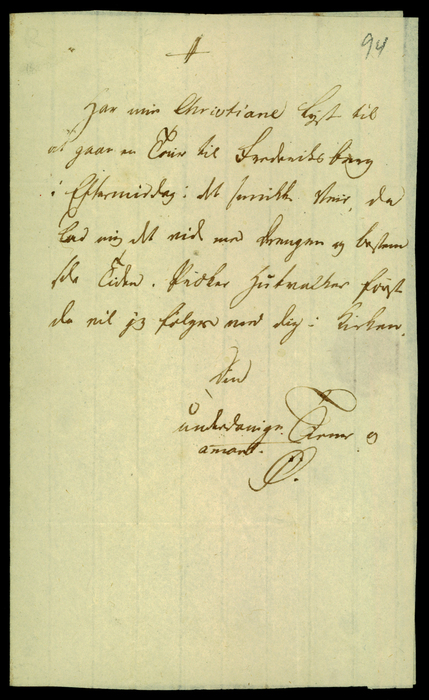 94
Har min Christiane Lyst til
at gaae en Tour til Frederiksberg
i Eftermiddag i det smukke Veir, da
lad mig det vide med Drengen og bestem
Tiden. Præker Hutvalker først
da vil jeg følge med dig i Kirken.
Din
underdanige Tiener og
amant.
O.